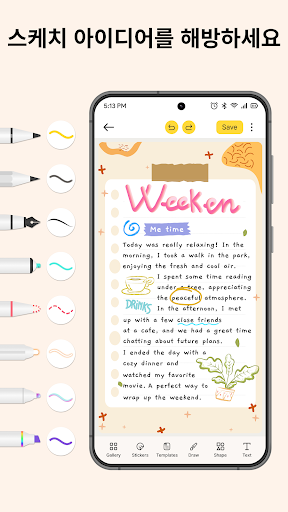 스케치 아이디어를 해방하세요
5:13 PM
Save
Weeken
Me time
Today was really relaxing! In the
morning, I took a walk in the park,
enjoying the fresh and cool air.
I spent some time reading
under a tree, appreciating
the peaceful atmosphere.
DRINKS
In the afternoon, I met
up with a few close friends
at a cafe, and we had a great time
chatting about future plans.
I ended the day with a
cozy dinner and
watched my favorite
movie. A perfect way to
wrap up the weekend.
Gallery
Stickers
Templates
Draw
Shape
Text